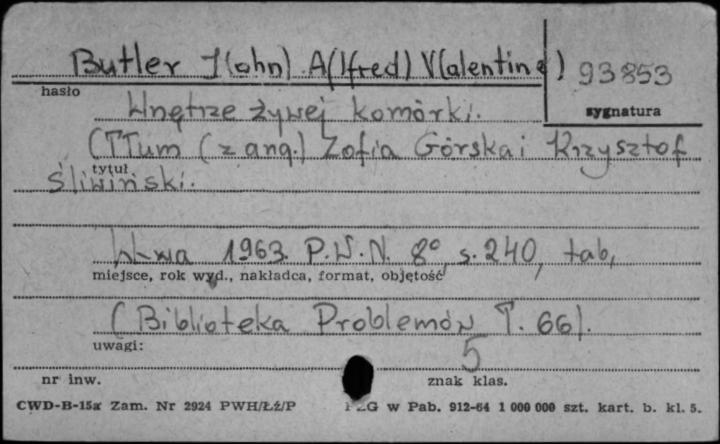 Butler J(ohn) A(lfred) V(alentine) 93853
hasło
sygnatura
Wnętrze żywej komórki.
(Tłum (z ang.) Zofia Górska i Krzysztof
tytuł
Śliwiński.
W-wa 1963. P.W.N. 8°, s. 240, tab,
miejsce, rok wyd., nakładca, format, objętość
(Biblioteka Problemów T. 66).
uwagi:
5
nr inw. znak klas.
CWD-B-15a Zam. Nr 2924 PWH/Łź/P w Pab. 912-64 1 000 000 szt. kart. b. kl. 5.